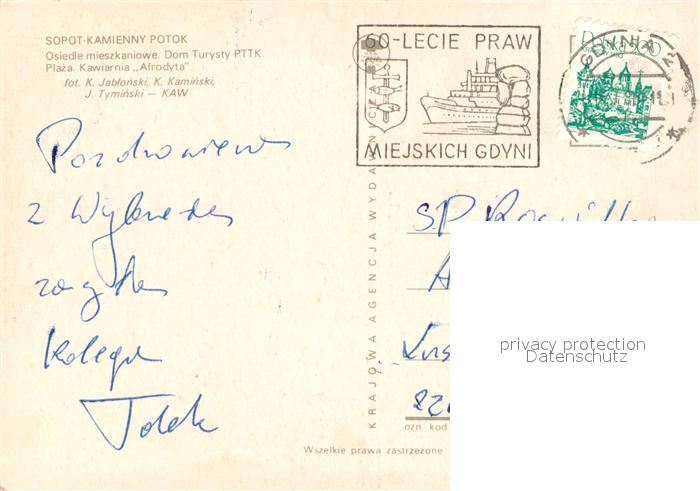 SOPOT-KAMIENNY POTOK
Osiedle mieszkaniowe. Dom Turysty PTTK.
Plaża. Kawiarnia „Afrodyta"
fot. K. Jabłoński, K. Kamiński,
J. Tymiński — KAW
60-LECIE PRAW
MIEJSKICH GDYNI
GDYNIA
Pozdrowienia
z Wybrzeża
kolega
KRAJOWA AGENCJA WYDAWNICZA
S.P.
ozn. kod
Wszelkie prawa zastrzeżone
privacy protection
Datenschutz